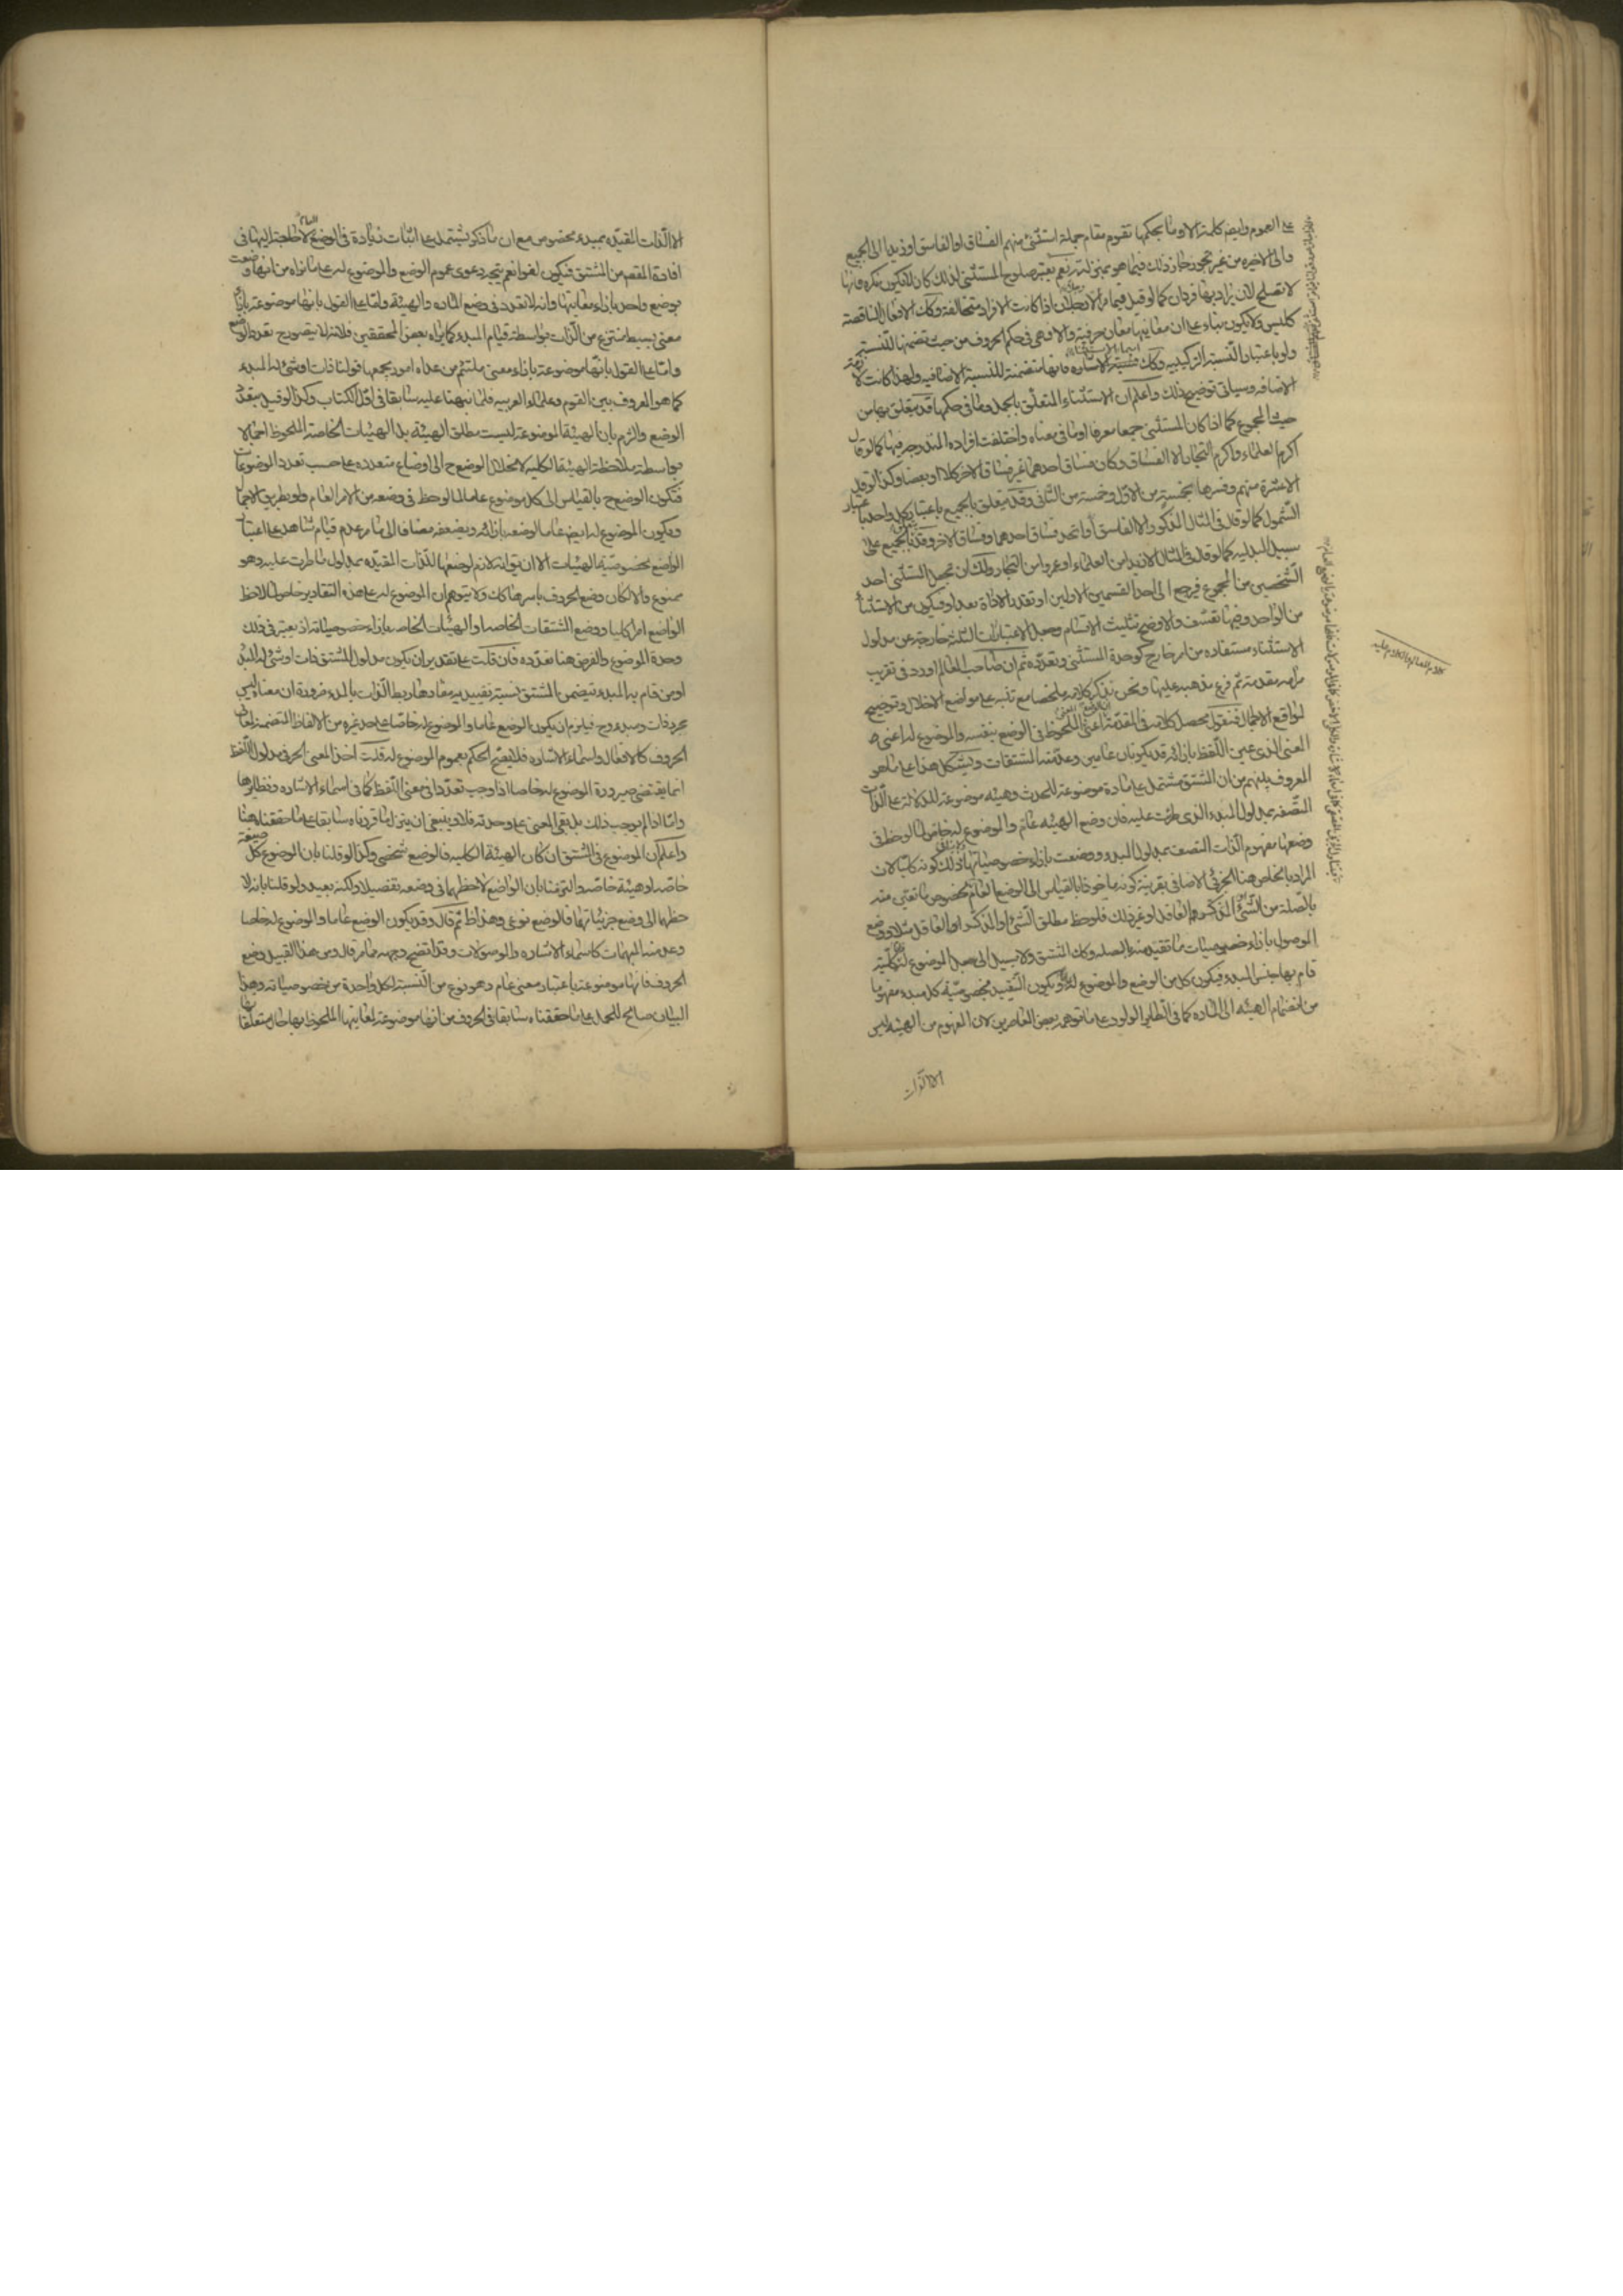 على العموم وايضا كلمة الا وما بحكمها تقوم مقام جملة استثنى منهم الفساق او الفاسق او زيدا الى الجميع
والى الاخيرة من غير تجوز جاز ذلك فيما هو بمنزلته نعم يعتبر صلوح المستثنى لذلك كان لا يكون نكرة فانها
لا تصلح لان يراد بها فردان كما لو قيل فيما مر الا رجلان اذا كانت الافراد متخالفة وكك الافعال الناقصة
كليس ولا يكون بناء على ان معانيها معان حرفية والا فهي في حكم الحروف من حيث تضمنها للنسبة
ولو باعتبار النسبة التركيبية وكك اسماء الاستثناء فانها متضمنة للنسبة الاضافية ولهذا كانت لازمة
الاضافه وسياتى توضيح ذلك واعلم ان الاستثناء المتعلق بالجمل وما في حكمها قد يتعلق بها من
حيث المجموع كما اذا كان المستثنى جمعا معرفا او ما في معناه واختلفت افراده المندرجة فيها كما لو قال
اكرم العلماء واكرم التجار الا الفساق وكان فساق احدهما غير فساق الاخر كلا او بعضا وكذا لو قيل
الا عشرة منهم وفسرها بخمسة من الاول وخمسة من الثانى وقد يتعلق بالجميع باعتبار كل واحد باعتبار
الشمول كما لو قال في المثال المذكور الا الفاسق او اتحد فساق احدهما وفساق الاخر وقد بالجميع على
سبيل البدلية كما لو قال في المثال الا زيدا من العلماء او عمروا من التجار ولك ان تجعل المستثنى احد
الشخصين من المجموع فيرجع الى احد القسمين الاولين او تقدر الاداة بعد او فيكون من الاستثناء
من الواحد وفيها تعسف والاوضح تثليث الاقسام وجعل الاعتبارات الثلثة خارجة عن مدلول
الاستثناء مستفاده من امر خارج كوحدة المستثنى وتعدده ثم ان صاحب المعالم اورد في تقريب
مرامه مقدمة ثم فرع مذهبه عليها ونحن نذكر كلامه ملخصا مع تنبه على مواضع الاخلال وتوضيح
لمواقع الاجمال فنقول محصل كلامه في المقدمة اعنى الملحوظ في الوضع بنفسه والموضوع له اعنى
المعنى الذى عين اللفظ بازائه قد يكونان عامين وعد منه المشتقات ويشكل هذا على ما هو
المعروف بينهم من ان المشتق مشتمل على مادة موضوعة للحدث وهيئه موضوعة للدلالة على الذات
المتصفه بمدلول المبدء الذى طرئت عليه فان وضع الهيئه عام والموضوع له خاص لما لوحظ في
وضعها مفهوم الذات المتصف بمدلول المبدء ووضعت بازاء خصوصياتها كونه كليا لان
المراد بالخاص هنا الجزئى الاضافى بقرينة كونه ماخوذا بالقياس الى الوضع العام بخصوص ما تعين منه
بالصلة من الشئ المذكر العاقل او غير ذلك فلوحظ مطلق الشئ او المذكر او العاقل مثلا ووضع
الموصول بازاء خصوصيات ما تقيد منه بالصله وكك المشتق ولا سبيل الى جعل الموضوع له كلية
قام بها جنس المبدء فيكون كل من الوضع والموضوع له ويكون التقييد بخصوصية كل مبدء مفهوما
من انضمام الهيئه الى الماده كما في الطلب على ما توهمه بعض المعاصرين لان المفهوم من الهيئه ليس
الا الذات
الا الذات المقيده بمبدء مخصوص مع ان ما ذكر يشتمل على اثبات زيادة في الوضع العام لا حاجة اليها في
افادة المقصد من المشتق فيكون لغوا نعم يتجه دعوى عموم الوضع والموضوع له على ما نراه من انها وضعت
بوضع واحد بازاء معانيها وانه لا تعدد في وضع الماده والهيئة واما على القول بانها موضوعة بازاء
معنى بسيط منتزع من الذات بواسطة قيام المبدء كما يراه بعض المحققين فلانه لا يتصور ح تعدد الوضع
واما على القول بانها موضوعة بازاء معنى ملتئم من عدة امور يجمعها قولنا ذات او شئ له المبدء
كما هو المعروف بين القوم وعلماء العربيه فلما نبهنا عليه سابقا في اول الكتاب وكذا لو قيل بتعدد
الوضع والتزم بان الهيئة الموضوعة ليست مطلق الهيئة بل الهيئات الخاصة الملحوظ اجمالا
بواسطة ملاحظة الهيئة الكليه لانحلال الوضع ح الى اوضاع متعدده على حسب تعدد الموضوعات
فيكون الوضع ح بالقياس الى كل موضوع عاما لما لوحظ في وضعه من الامر العام ولو بطريق الاجمال
ويكون الموضوع له ايضا عاما لوضعه بازائه ويضعفه مضافا الى ما مر عدم قيام شاهد على اعتبار
الواضع بخصوصية الهيئات الا ان يق انه لازم لوضعها للذات المقيده بمدلول ما طرت عليه وهو
ممنوع والا لكان وضع الحروف باسرها كك ولا يتوهم ان الموضوع له على هذه التقادير خاص لملاحظة
الواضع امرا كليا ووضع المشتقات الخاصه او الهيئات الخاصه بازاء خصوصياته اذ يعتبر في ذلك
وحدة الموضوع والفرض هنا تعدده فان قلت على تقدير ان يكون مدلول المشتق ذات او شئ له المبدء
او من قام به المبدء يتضمن المشتق نسبة تقييديه مفادها ربط الذات بالمبدء ضرورة ان معناه ليس
مجرد ذات ومبدء وح فيلزم ان يكون الوضع عاما والموضوع له خاصا على حد غيره من الالفاظ المتضمنه لمعانى
الحروف كالافعال واسماء الاشاره فلا يصح الحكم بعموم الموضوع له قلت اخذ المعنى الحرفى في مدلول اللفظ
انما يقتضى صيرورة الموضوع له خاصا اذا وجب تعددا في معنى اللفظ كما في اسماء الاشاره ونظايرها
واما اذا لم يوجب ذلك بل بقى المعنى على وحدته فلا وينبغى ان ينزل ما قررناه سابقا على ما حققناه هنا
واعلم ان الموضوع في المشتق ان كان الهيئة الكليه فالوضع شخصى وكذا لو قلنا بان الموضوع كل صيغة
خاصه او هيئة خاصه والتزمنا بان الواضع لاحظهما في وضعه تفصيلا ولكنه بعيد ولو قلنا بانه لا
حظهما الى وضع جزئياتهما فالوضع نوعى وهذا ظ ثم قال وقد يكون الوضع عاما والموضوع له خاصا
وعد منه المبهمات كاسماء الاشاره والموصولات وقد اتضح وجهه مما مر قال ومن هذا القبيل وضع
الحروف فانها موضوعة باعتبار معنى عام وهو نوع من النسبة لكل واحدة من خصوصياته وهذا
البيان صالح للحمل على ما حققناه سابقا في الحروف من انها موضوعة لمعانيها الملحوظ بها حال متعلقاتها